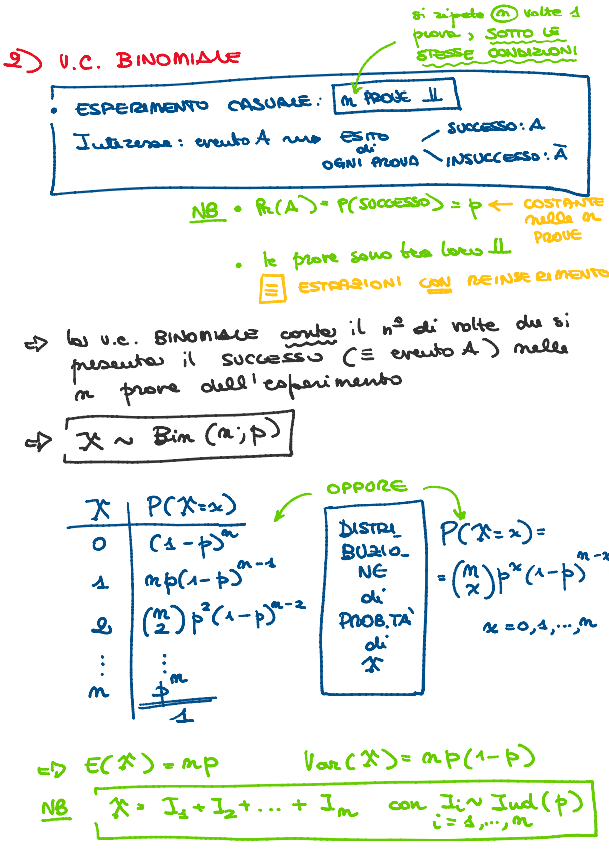 si ripete n volte 1
prova, SOTTO LE
STESSE CONDIZIONI
2) V.C. BINOMIALE
• ESPERIMENTO CASUALE: n PROVE ⫫
Interesse: evento A ⟿ ESITO di OGNI PROVA
SUCCESSO: A
INSUCCESSO: Ā
NB • Pr(A) = P(SUCCESSO) = p ← COSTANTE
nelle n
PROVE
• le prove sono tra loro ⫫
ESTRAZIONI CON REINSERIMENTO
⇒ la v.c. BINOMIALE conta il n° di volte che si
presenta il SUCCESSO (≡ evento A) nelle
n prove dell'esperimento
⇒ X ~ Bin (n; p)
OPPORE
X P(X=x)
0 (1-p)^n
1 np(1-p)^{n-1}
2 (n 2) p^2 (1-p)^{n-2}
⋮ ⋮
n p^n
1
DISTRI_
BUZIO_
NE
di
PROB.TÀ
di
X
P(X=x) =
= (n x) p^x (1-p)^{n-x}
x = 0,1,...,n
⇒ E(X) = np Var(X) = np(1-p)
NB X = I_1 + I_2 + ... + I_n con I_i ~ Ind(p)
i = 1,...,n